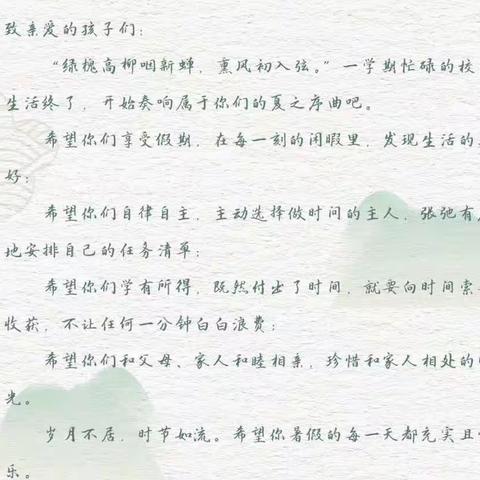 致亲爱的孩子们：
“绿槐高柳咽新蝉，熏风初入弦。”一学期忙碌的校
生活终了，开始奏响属于你们的夏之序曲吧。
希望你们享受假期，在每一刻的闲暇里，发现生活的
好；
希望你们自律自主，主动选择做时间的主人，张弛有
地安排自己的任务清单；
希望你们学有所得，既然付出了时间，就要向时间索
收获，不让任何一分钟白白浪费；
希望你们和父母、家人和睦相亲，珍惜和家人相处的
光。
岁月不居，时节如流。希望你暑假的每一天都充实且
乐。